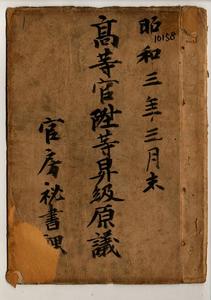 昭和三年三月末
10158
高等官陞等昇級原議
官房祕書課